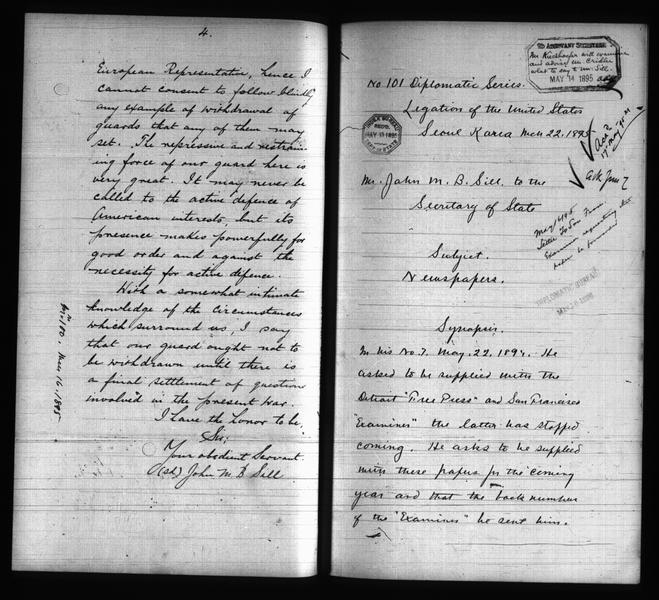 4.
European Representative, hence I
cannot consent to follow blindly
any example of withdrawal of
guards that any of them may
set. The repressive and restrain-
ing force of our guard here is
very great. It may never be
called to the active defence of
American interests, but its
presence makes powerfully for
good order and against the
necessity for active defence.
With a somewhat intimate
knowledge of the circumstances
which surround us, I say
that our guard ought not to
be withdrawn until there is
a final settlement of question
involved in the present war.
I have the honor to be,
Sir:
Your obedient Servant
(sd) John M. B Sill
No 100. Mch 16. 1895
TO ASSISTANT SECRETARY
Mr. will examine
and advise Mr. Cridler
what to say to Mr. Sill.
MAY 14 1895
No 101 Diplomatic Series.
Legation of the United States
Seoul Korea Mch 22, 1895
MAY 13 1895
DEPT. OF STATE
Mr. John M. B. Sill to the
Secretary of State
Ack June 7
May 14 95
Letter To San Fran.
Examiner requesting
be forwarded
DIPLOMATIC BUREAU
Subject.
Newspapers.
Synopsis.
In his No 7. May. 22, 1894. He
asked to be supplied with the
Detroit "Free Press" and San Francisco
"Examiner" the latter has stopped
coming. He asks to be supplied
with these papers for the coming
year and that the back numbers
of the "Examiner" be sent him.